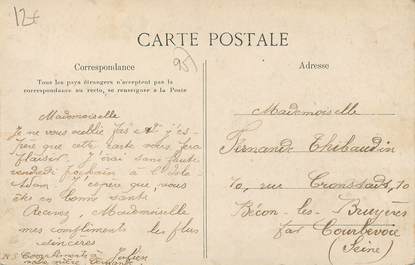 12€
CARTE POSTALE
Correspondance
Tous les pays étrangers n'acceptent pas la
correspondance au recto, se renseigner à la Poste
95
Mademoiselle
Je ne vous oublie pas
père que cette carte vous fera
plaisir. J'irai sans faute
vendredi prochain à l'Isle
Adam. J'espère que vous
êtes en bonne santé
Recevez, Mademoiselle
mes compliments les plus
sincères
Julien
N.S Compliments à
votre mère
Adresse
Mademoiselle
Fernande Thibaudin
70, rue 70
Bécon-les-Bruyères
par Courbevoie
(Seine)